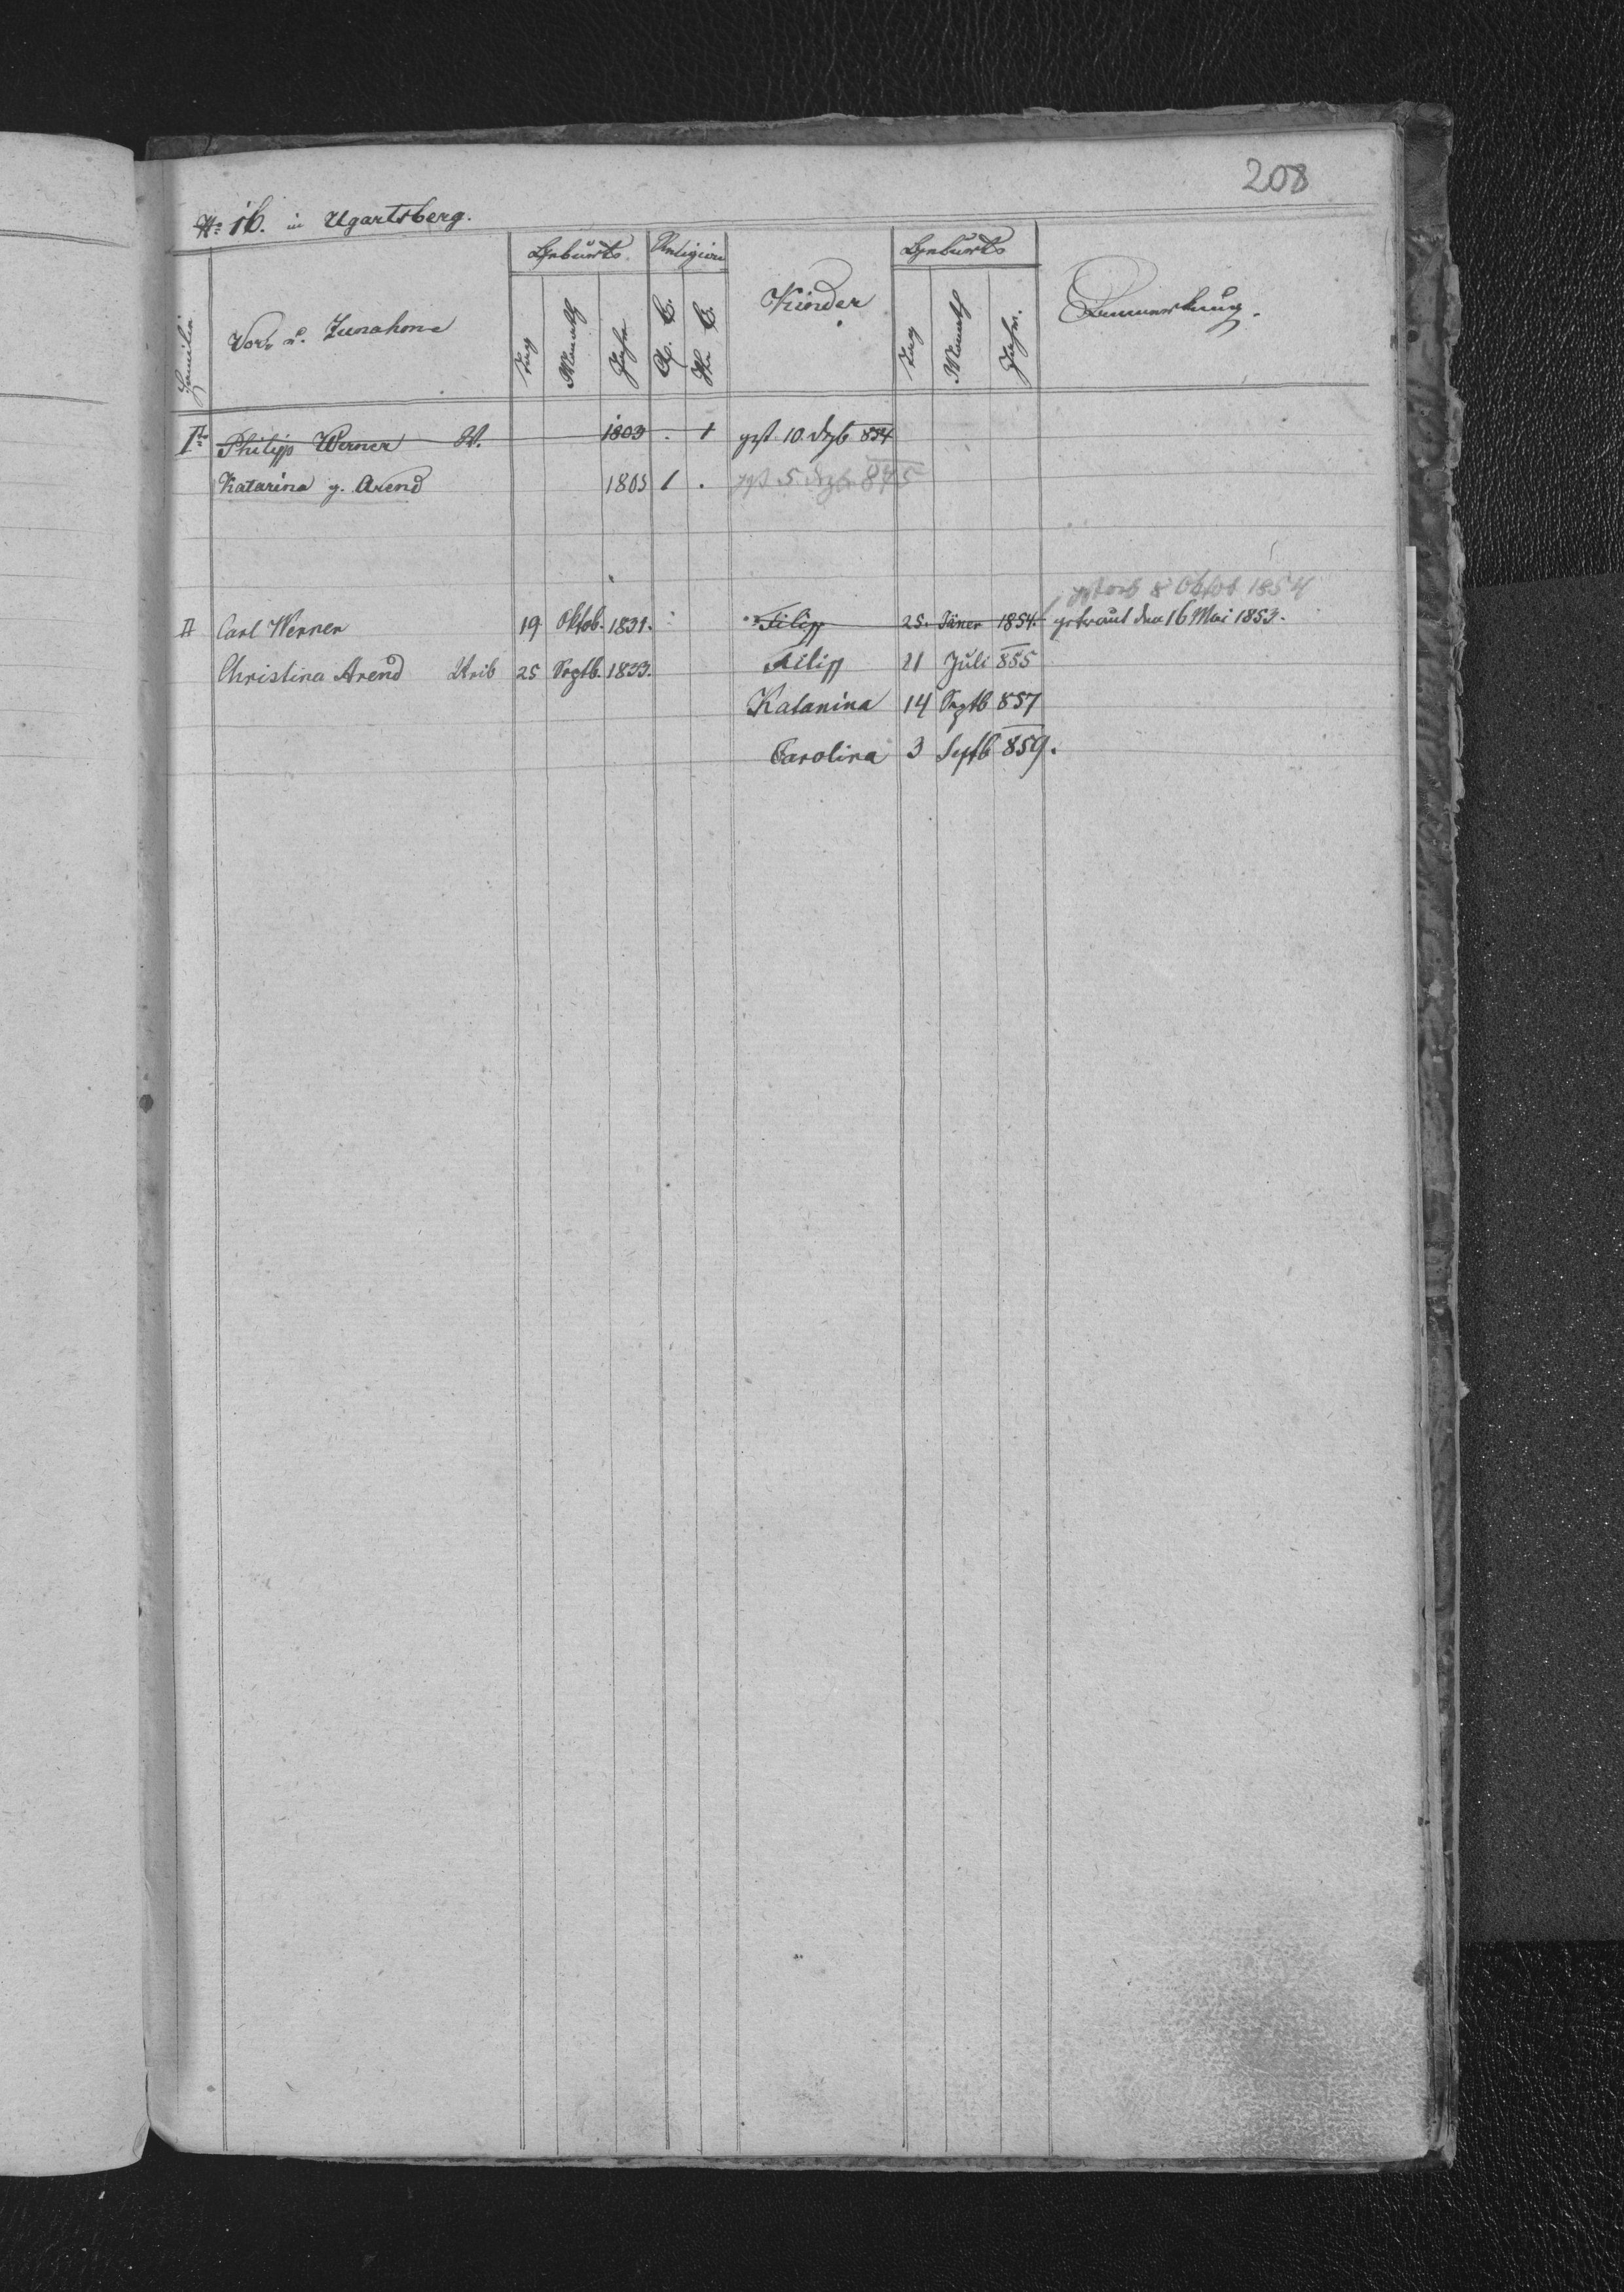 208
No 16. in Ugartsberg.
Familie Vor- u. Zunahme Geburts Religion Kinder Geburts Bemerkung.
Tag Monath Jahr A. C. H. C. Tag Monath Jahr.
I. Philipp Werner W. 1803 . 1 gst. 10. Dezb. 854
Katarina g. Arend 1805 1 . gst 5. Dezb. 875
gestorb 8 Oktob 1854
II Carl Werner 19 Oktob. 1831. Filipp 25. Jäner 1854. getraut den 16 Mai 1853.
Christina Arend Weib 25 Septb. 1833. Filipp 21 Juli 855
Katarina 14 Septb 857
Carolina 3 Septb 859.